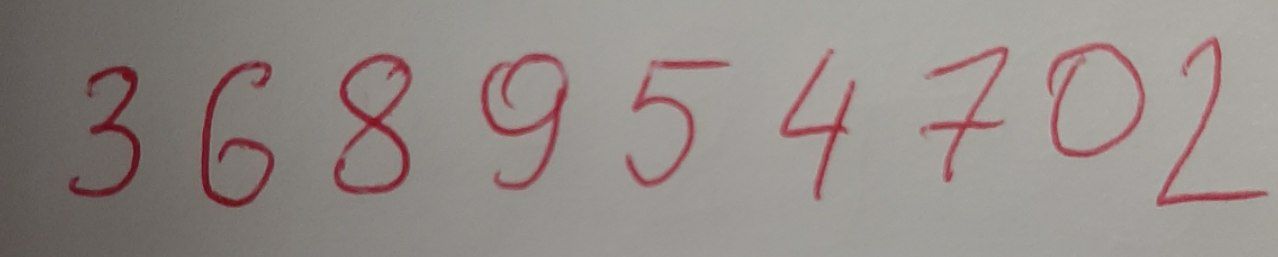 3 6 8 9 5 4 7 0 2